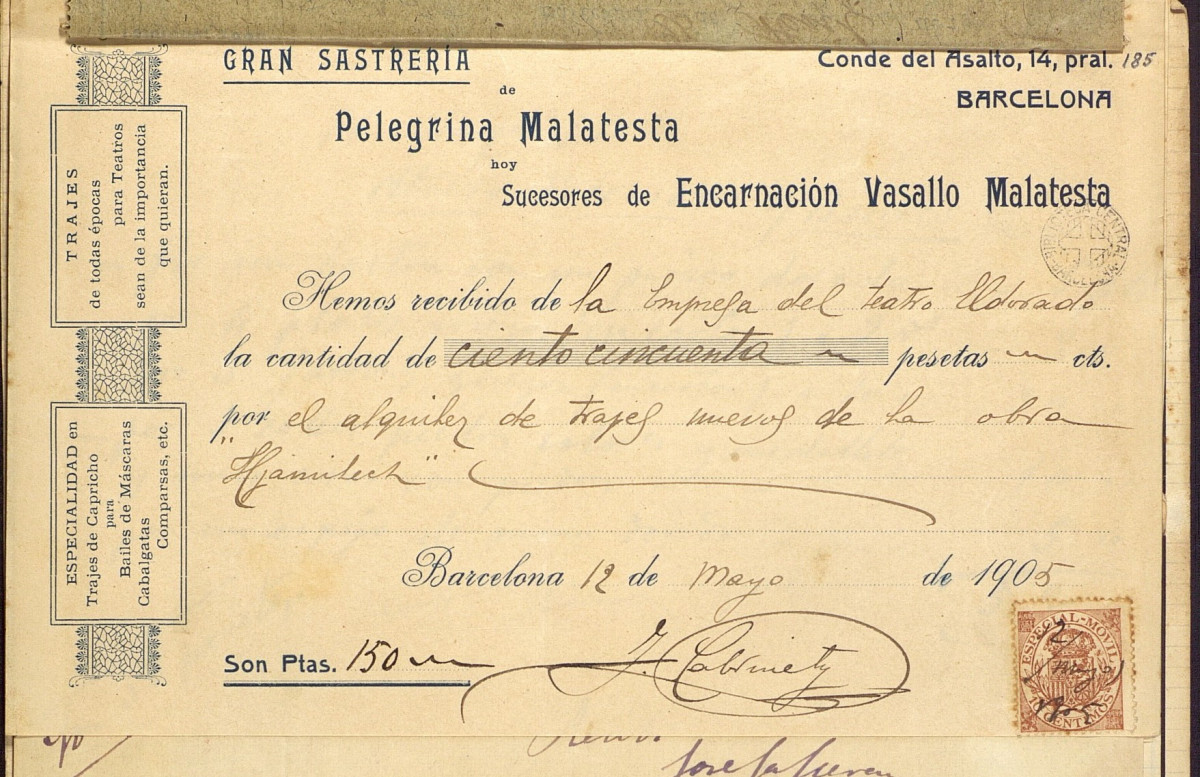 GRAN SASTRERÍA
de
Pelegrina Malatesta
hoy
Sucesores de Encarnación Vasallo Malatesta
Conde del Asalto, 14, pral. 185
BARCELONA
TRAJES
de todas épocas
para Teatros
sean de la importancia
que quieran.
ESPECIALIDAD en
Trajes de Capricho
para
Bailes de Máscaras
Cabalgatas
Comparsas, etc.
BIBLIOTECA CENTRAL BARCELONA
Hemos recibido de la Empresa del teatro Eldorado
la cantidad de ciento cincuenta pesetas cts.
por el alquiler de trajes nuevos de la obra
"Hjamlech"
Barcelona 12 de Mayo de 1905
Son Ptas. 150
J. Cabrinety
ESPECIAL-MÓVIL
10 CENTIMOS